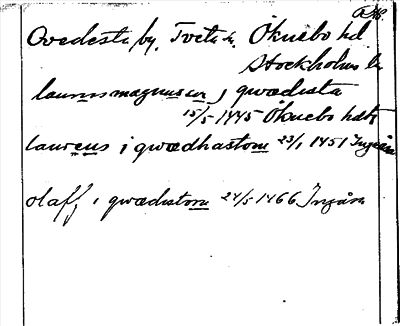 Qvedesta by, Tveta s. Öknebo hd
Stockholms l.
laurens magnusson, j qwædista
15/5 1445 Öknebo hdt
laurens i qwædhastom 23/1 1451
olaff i qwædistom 24/5 1466